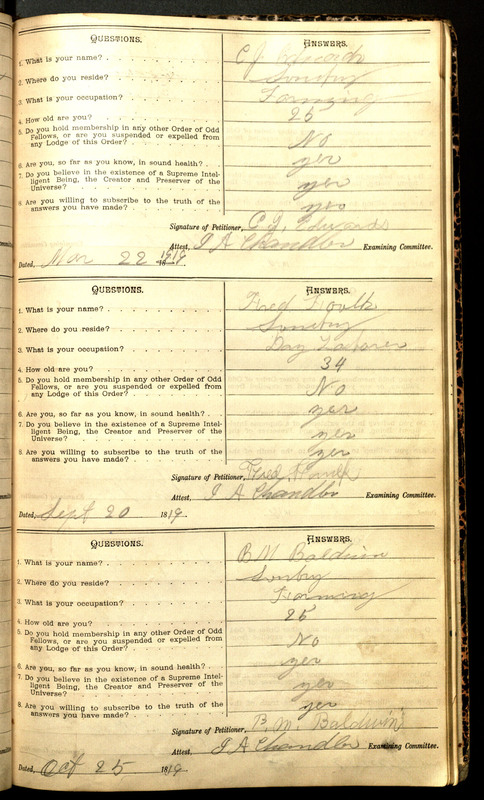 QUESTIONS. ANSWERS.
1. What is your name? C J Edwards
2. Where do you reside?
3. What is your occupation? Farming
4. How old are you? 25
5. Do you hold membership in any other Order of Odd
Fellows, or are you suspended or expelled from
any Lodge of this Order? No
6. Are you, so far as you know, in sound health? yes
7. Do you believe in the existence of a Supreme Intel-
ligent Being, the Creator and Preserver of the
Universe? yes
8. Are you willing to subscribe to the truth of the
answers you have made? yes
Signature of Petitioner, C J. Edwards
Attest, I A Chandler Examining Committee.
Dated, Mar 22 1919
QUESTIONS. ANSWERS.
1. What is your name? Fred Foulk
2. Where do you reside?
3. What is your occupation? Day Laborer
4. How old are you? 34
5. Do you hold membership in any other Order of Odd
Fellows, or are you suspended or expelled from
any Lodge of this Order? No
6. Are you, so far as you know, in sound health? yes
7. Do you believe in the existence of a Supreme Intel-
ligent Being, the Creator and Preserver of the
Universe? yes
8. Are you willing to subscribe to the truth of the
answers you have made? yes
Signature of Petitioner, Fred Foulk
Attest, I A Chandler Examining Committee.
Dated, Sept 20 1819
QUESTIONS. ANSWERS.
1. What is your name? B M Baldwin
2. Where do you reside?
3. What is your occupation? Farming
4. How old are you? 25
5. Do you hold membership in any other Order of Odd
Fellows, or are you suspended or expelled from
any Lodge of this Order? No
6. Are you, so far as you know, in sound health? yes
7. Do you believe in the existence of a Supreme Intel-
ligent Being, the Creator and Preserver of the
Universe? yes
8. Are you willing to subscribe to the truth of the
answers you have made? yes
Signature of Petitioner, B. M. Baldwin
Attest, I A Chandler Examining Committee.
Dated, Oct 25 1819